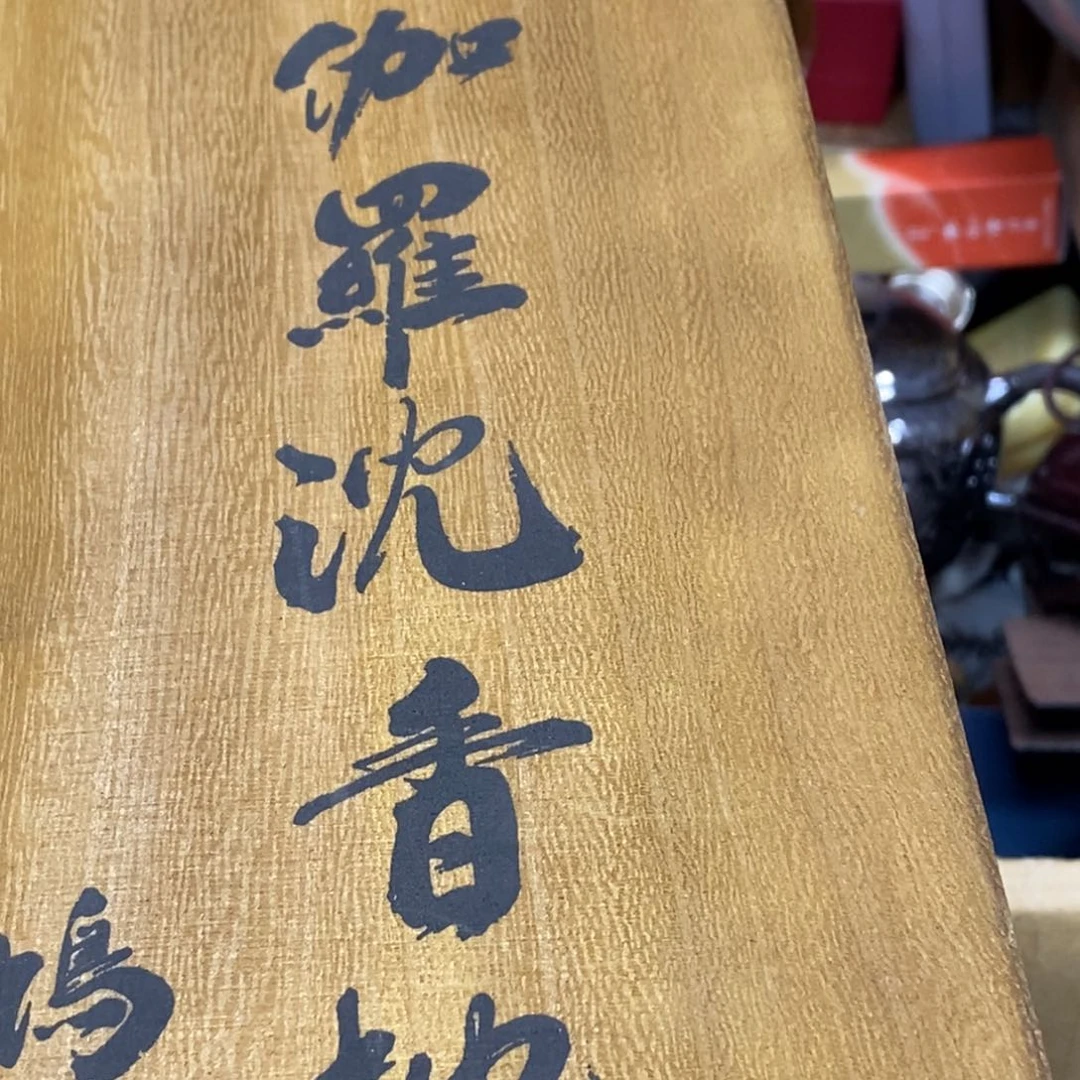 伽羅沈香
鳩